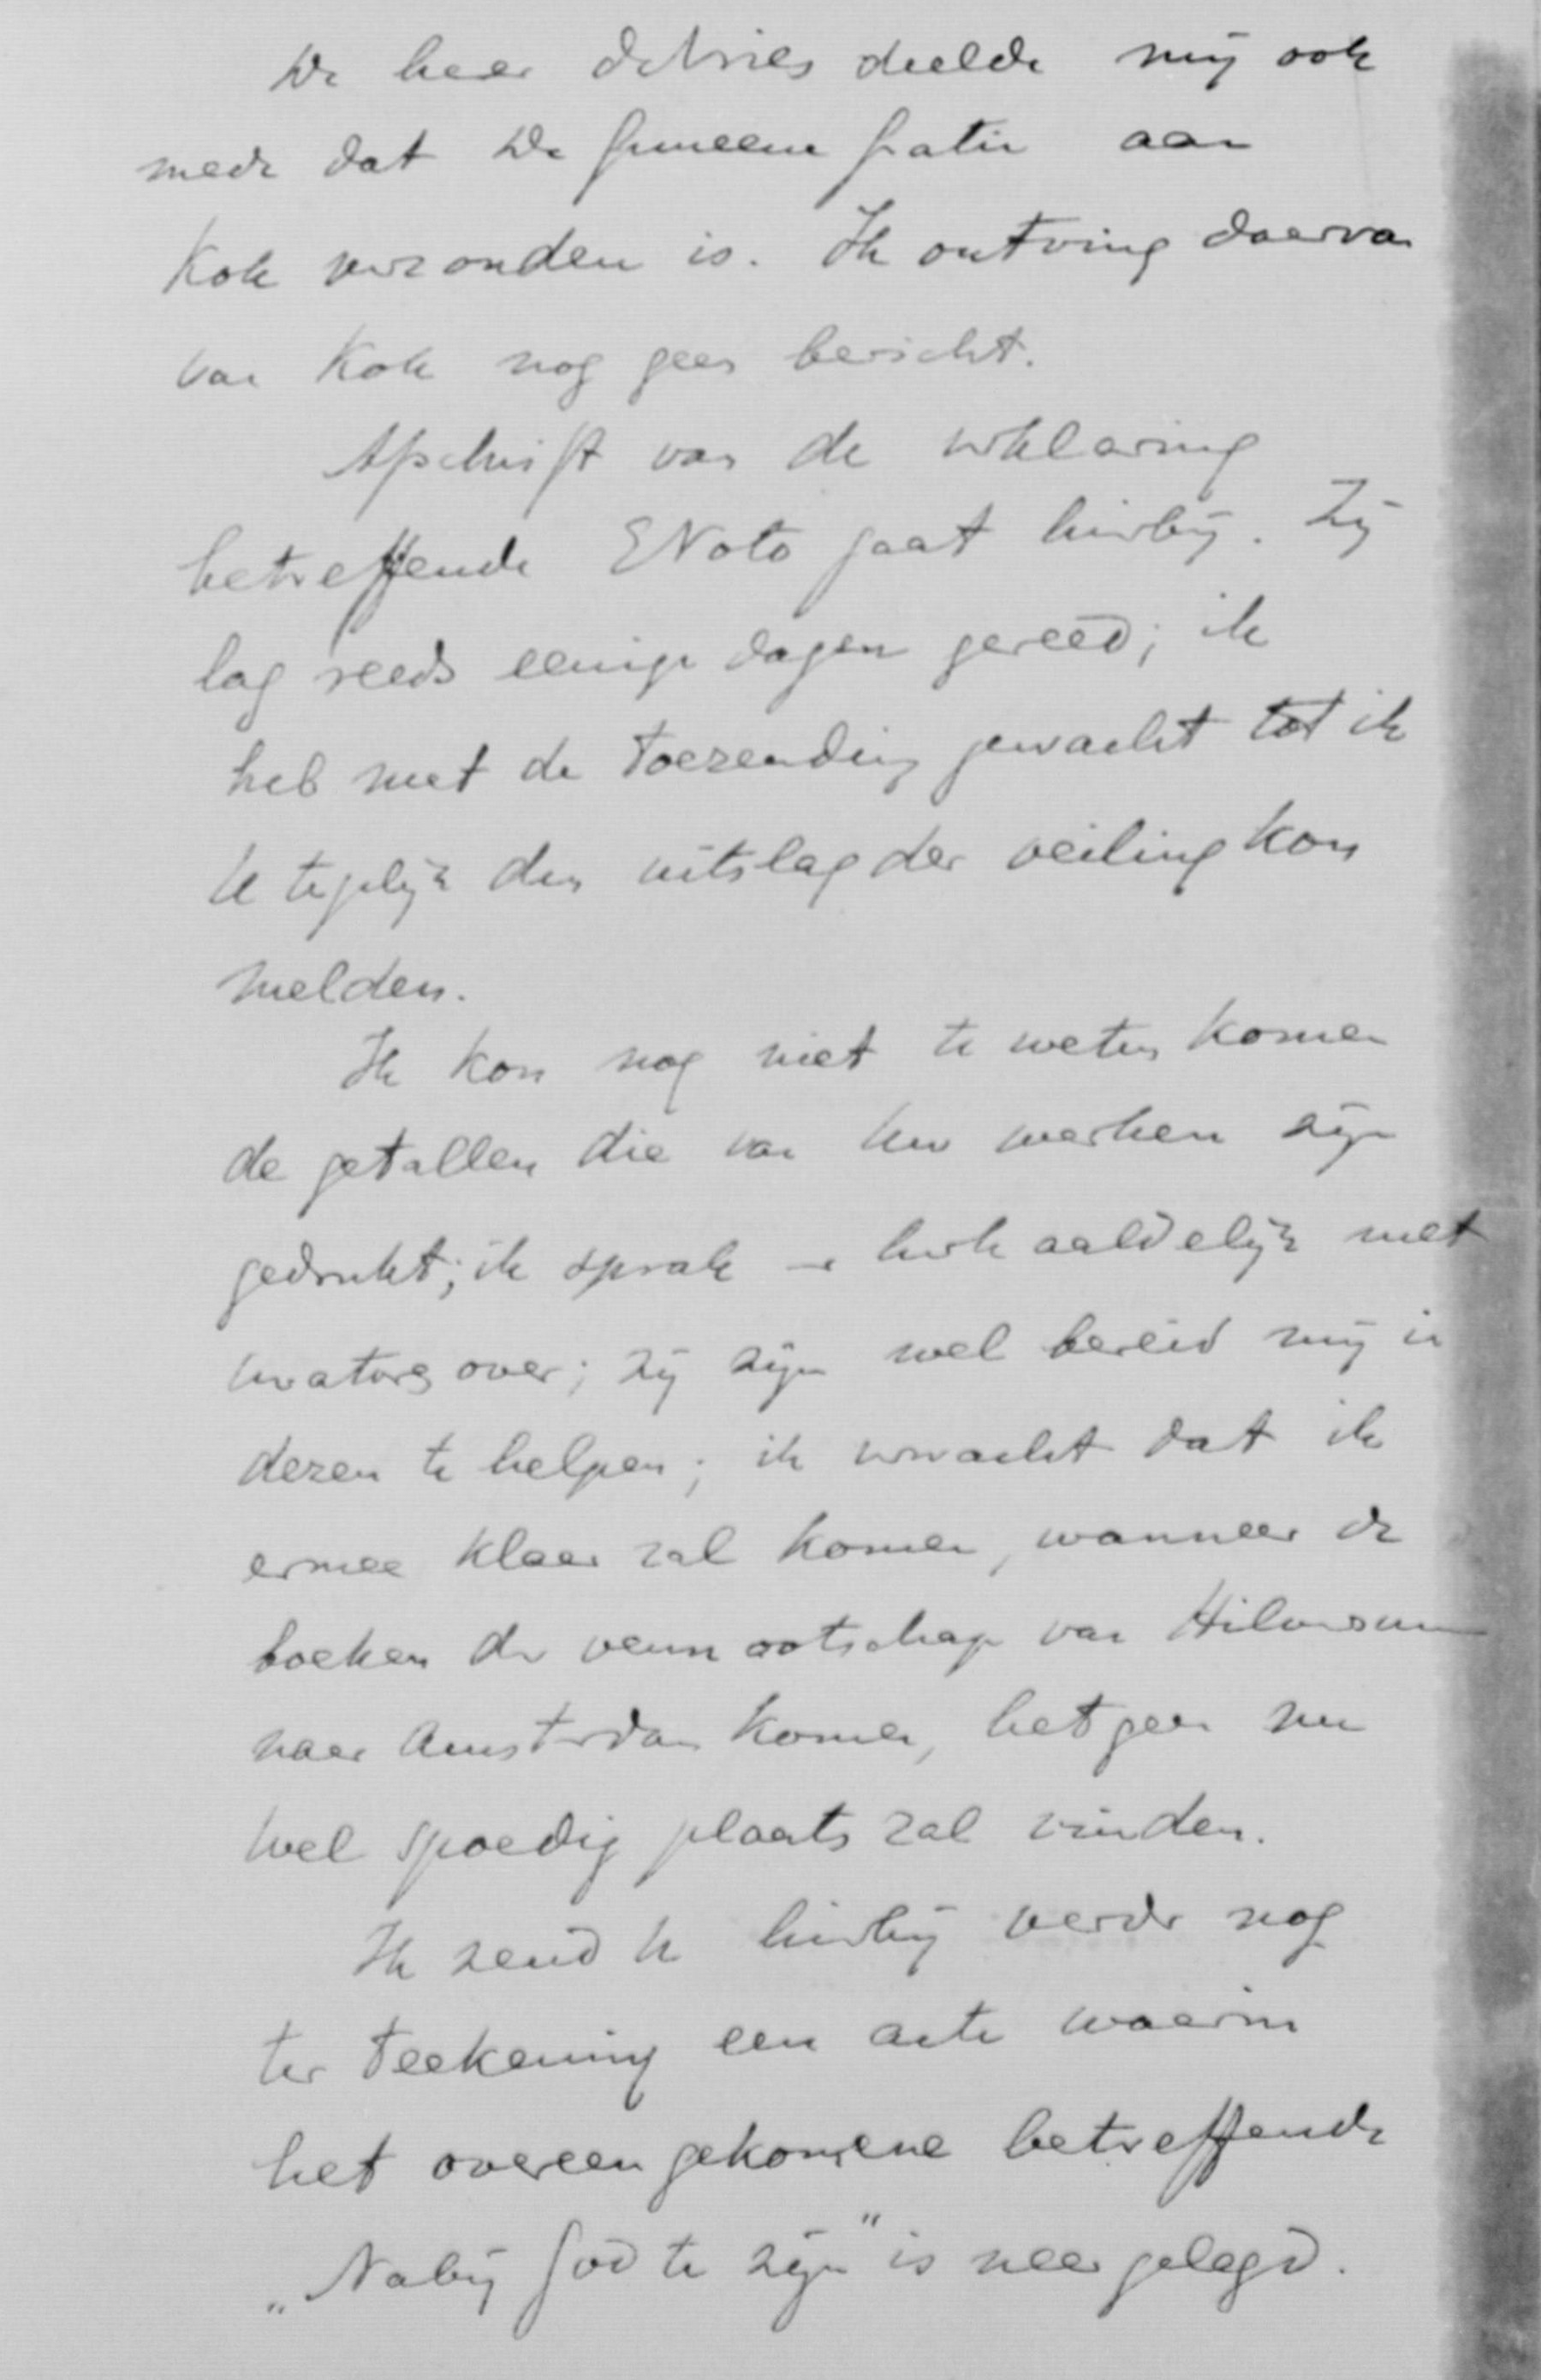 De heer de Vries deelde mij ook
mede dat De Gemeene Gratie aan
Kok verzonden is. Ik ontving daarvan
van Kok nog geen bericht.
Afschrift van de verklaring
betreffende E Voto gaat hierbij. Zij
lag reeds eenige dagen gereed; ik
heb met de toezending gewacht tot ik
U tegelijk den uitslag der veiling kon
melden.
Ik kon nog niet te weten komen
de getallen die van Uw werken zijn
gedrukt; ik sprak er herhaaldelijk met
curators over; zij zijn wel bereid mij in
dezen te helpen; ik verwacht dat ik
ermee klaar zal komen, wanneer de
boeken der vennootschap van Hilversum
naar Amsterdam komen, hetgeen nu
wel spoedig plaats zal vinden.
Ik zend U hierbij verder nog
ter teekening een acte waarin
het overeengekomene betreffende
„Nabij God te zijn" is neergelegd.